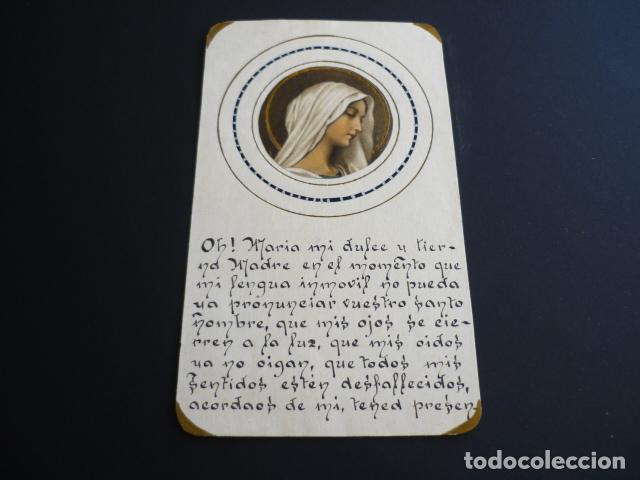 Oh! Maria mi dulce y tier-
na Madre en el momento que
mi lengua inmovil no pueda
ya pronunciar vuestro santo
nombre, que mis ojos se cie-
rren a la luz, que mis oidos
ya no oigan, que todos mis
sentidos estén desfallecidos,
acordaos de mi, tened presen-
todocoleccion